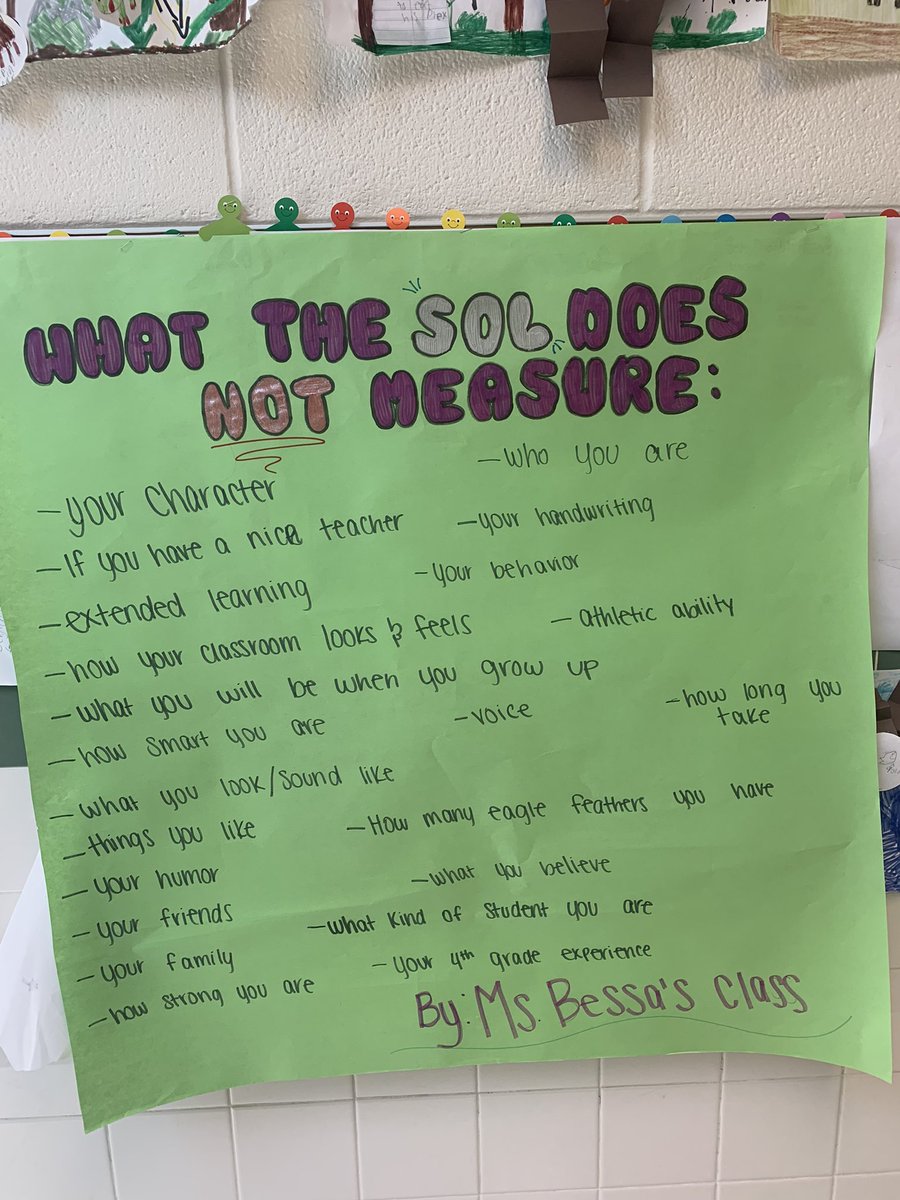 WHAT THE SOL DOES
NOT MEASURE:
-who you are
-your character
-If you have a nice teacher
-your handwriting
-extended learning
-your behavior
-how your classroom looks & feels
-athletic ability
-what you will be when you grow up
-how smart you are
-voice
-how long you
take
-what you look/sound like
-things you like
-How many eagle feathers you have
-your humor
-what you believe
-your friends
-what kind of student you are
-your family
-your 4th grade experience
-how strong you are
By: Ms. Bessa's Class